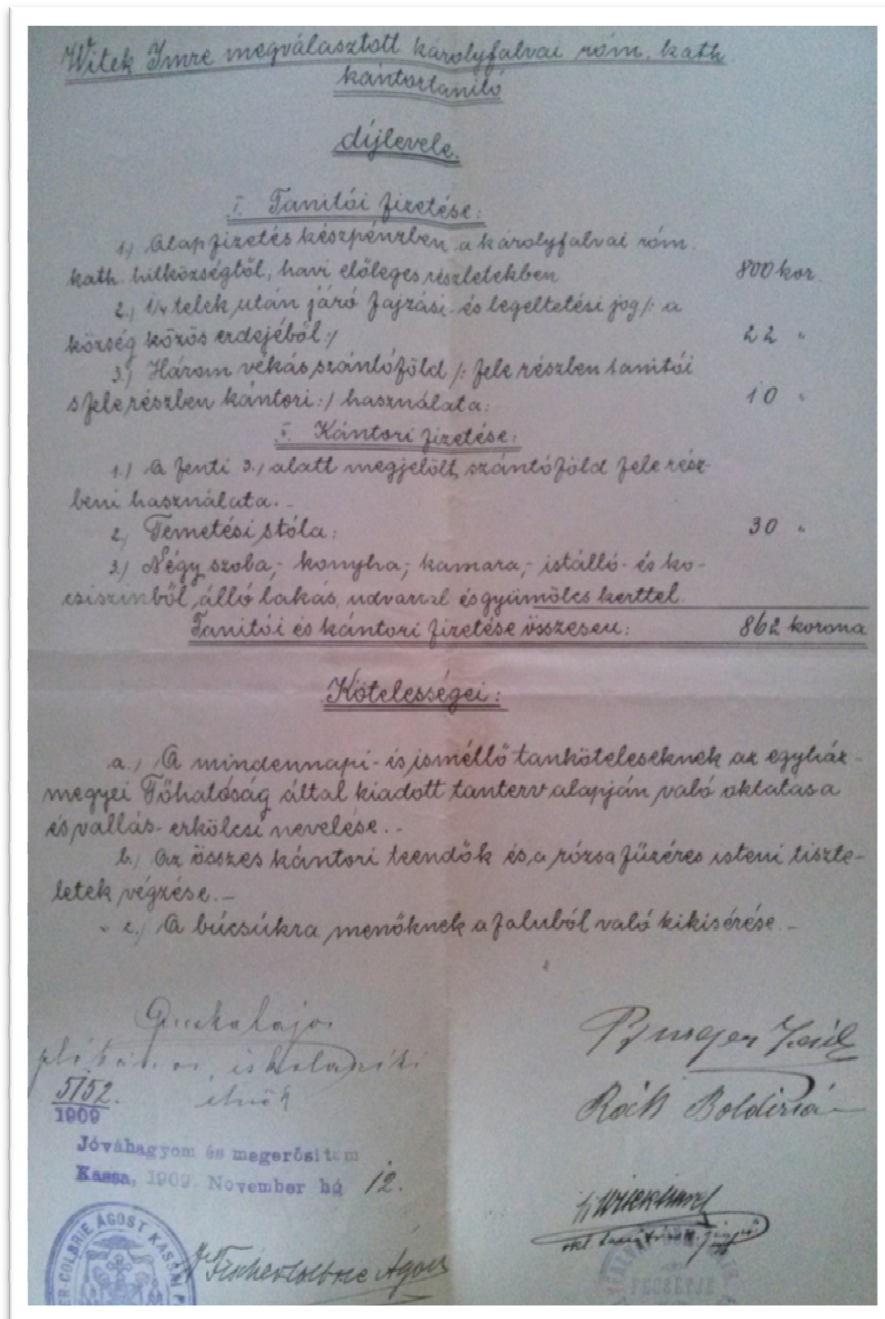 Witek Imre megválasztott károlyfalvai róm. kath
kántortanító
díjlevele.
I. Tanitói fizetése:
1., Alapfizetés készpénzben a károlyfalvai róm.
kath. hitközségtől, havi előleges részletekben 800 kor.
2., 1/4 telek után járó fajzási- és legeltetési jog /: a
község közös erdejéből :/ 22 "
3., Három vékás szántóföld /: fele részben tanitói
s fele részben kántori :/ használata: 10 "
I. Kántori fizetése:
1.) A fenti 3.) alatt megjelölt szántóföld fele rész-
beni használata. -
2., Temetési stóla: 30 "
3.) Négy szoba,- konyha,- kamara,- istálló- és ko-
csiszinből álló lakás, udvarral és gyümölcs kerttel.
Tanitói és kántori fizetése összesen: 862 korona
Kötelességei:
a.) A mindennapi- és ismétlő tanköteleseknek az egyház-
megyei Főhatóság által kiadott tanterv alapján való oktatása
és vallás-erkölcsi nevelése. -
b., Az összes kántori teendők és a rózsafűzéres isteni tiszte-
letek végzése. -
c.) A búcsúkra menőknek a faluból való kikisérése. -
plébános, iskolaszéki
elnök
5152.
1909
Jóváhagyom és megerősitem
Kassa, 1909. November hó 12.
Boldizsár
ÁGOST
Fischer Colbrie Ágost
PECSÉTJE